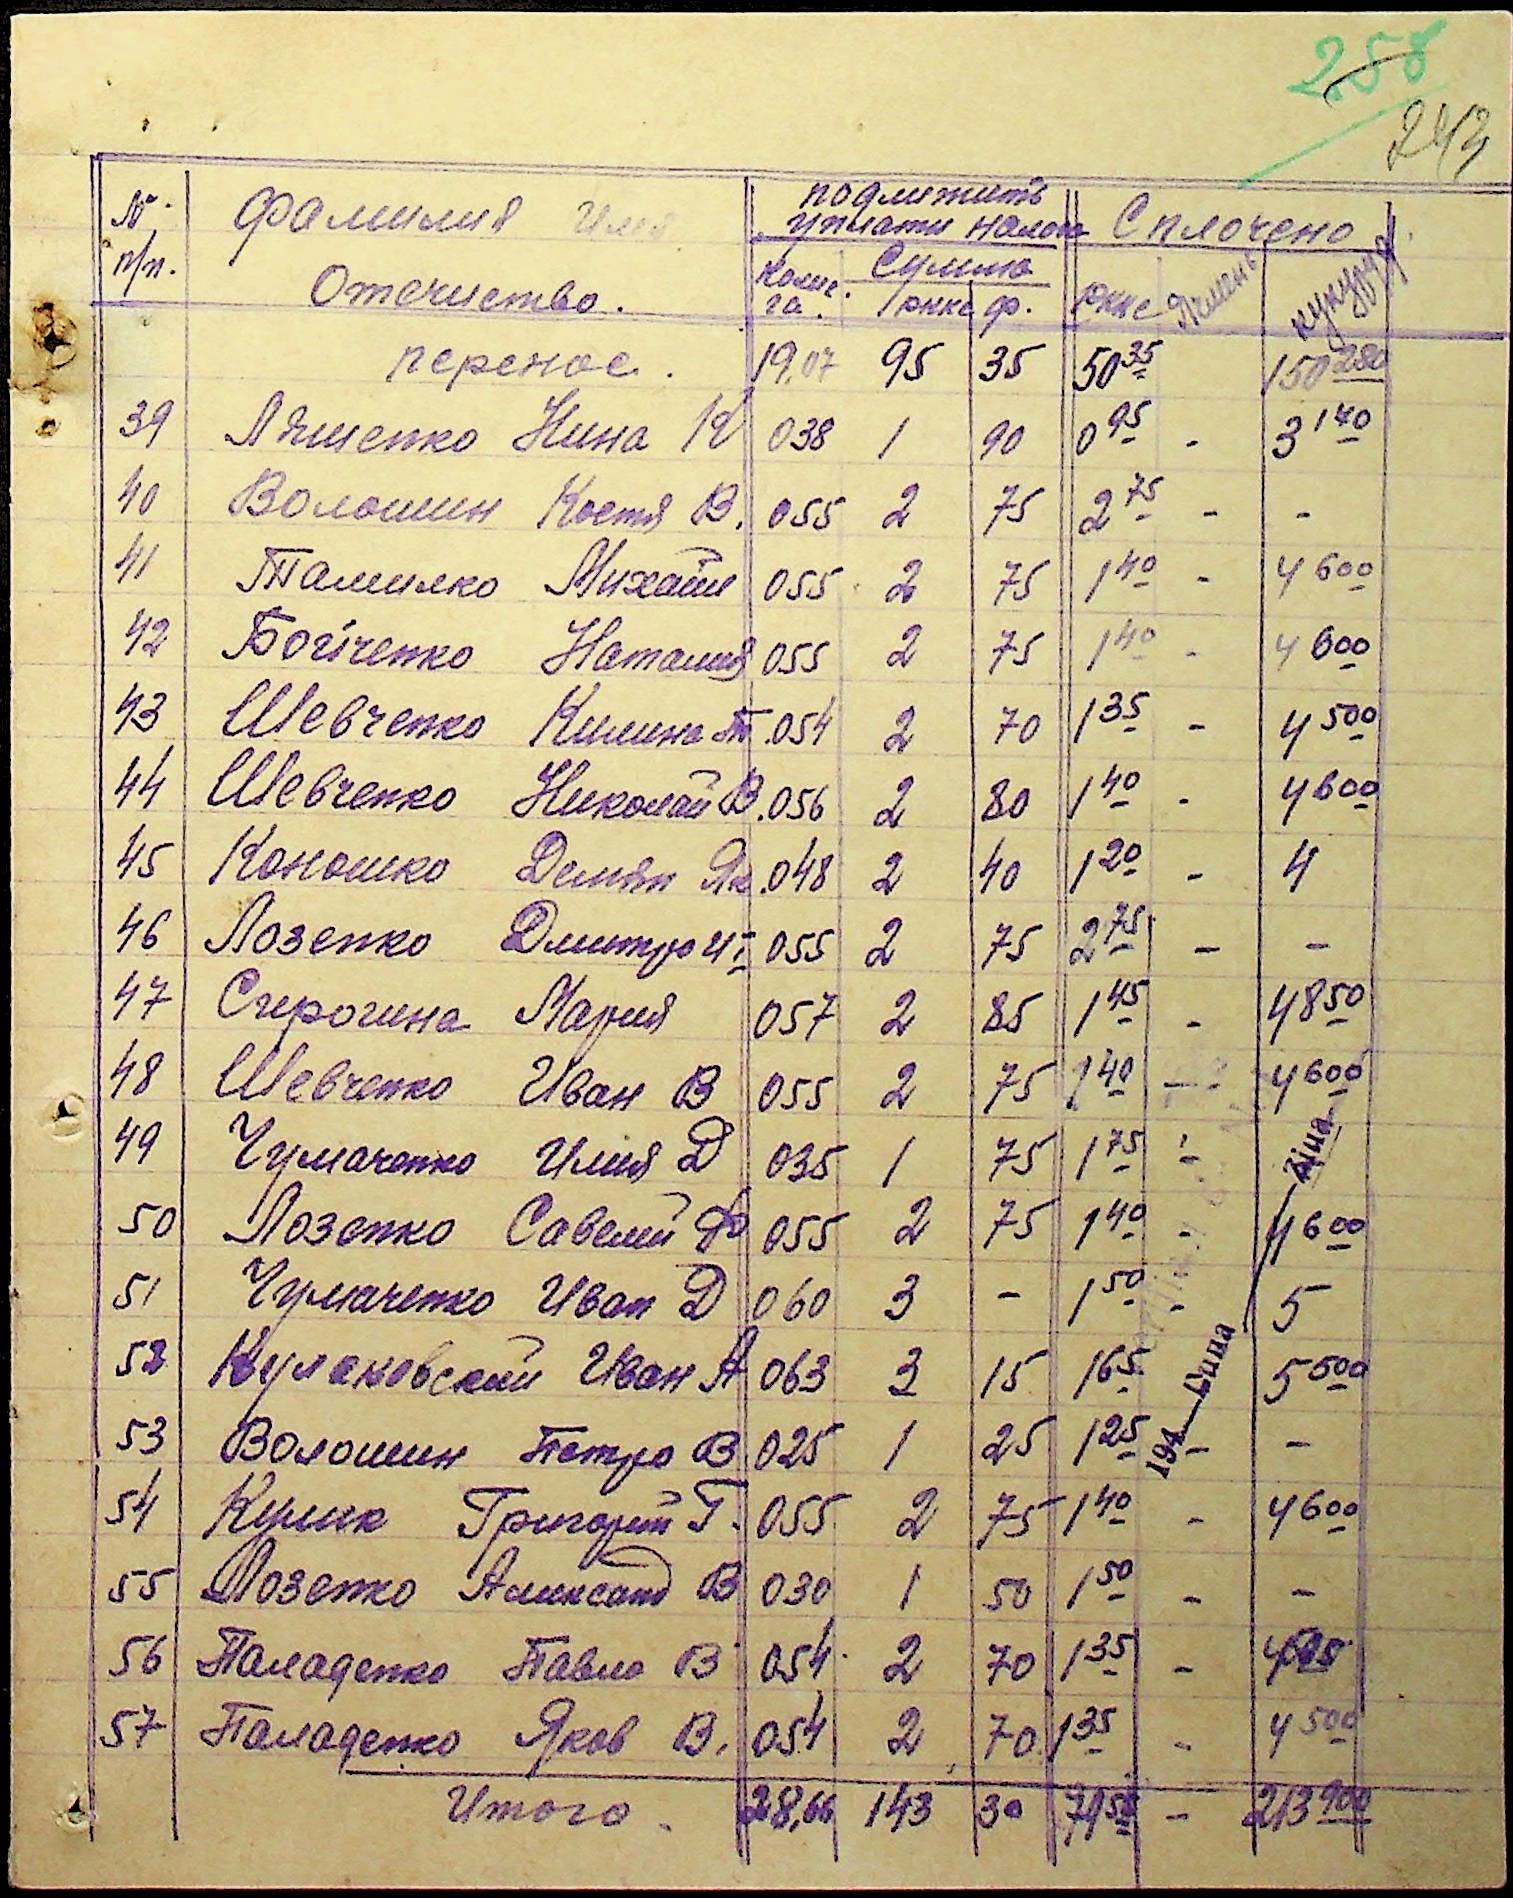 258
243
№ п/п. Фамилия Имя Отечиство. подлижить уплати налога Сплочено
Колич. га. Сумма ркке ф. ркке Ячмень кукуруз
перенос. 19,07 95 35 50 35 150 280
39 Ляшенко Нина К 038 1 90 0 95 - 3 170
40 Волошин Костя В. 055 2 75 2 75 - -
41 Томилко Михайил 055 2 75 1 40 - 4 600
42 Богіченко Наталия 055 2 75 1 40 - 4 600
43 Шевченко Килина Т. 054 2 70 1 35 - 4 500
44 Шевченко Николай В. 056 2 80 1 40 - 4 600
45 Коношко Демян Як. 048 2 40 1 20 - 4
46 Лозенко Дмитро И 055 2 75 2 75 - -
47 Мария 057 2 85 1 45 - 4 850
48 Шевченко Иван В 055 2 75 1 40 - 4 600
49 Чумаченко Илия Д 035 1 75 1 75 -
50 Лозенко Савелий Ф 055 2 75 1 40 - 4 600
51 Чумаченко Иван Д 060 3 - 1 50 - 5
52 Кулаковский Иван А 063 3 15 1 65 5 500
53 Волошин Петро В 025 1 25 1 25 - -
194
54 Кулик Григорий Г. 055 2 75 1 40 - 4 600
55 Лозенко Аликсанд В 030 1 50 1 50 - -
56 Паладенко Павло В 054 2 70 1 35 -
57 Паладенко Яков В. 054 2 70 1 35 - 4 500
Итого. 28,66 143 30 - 213 900